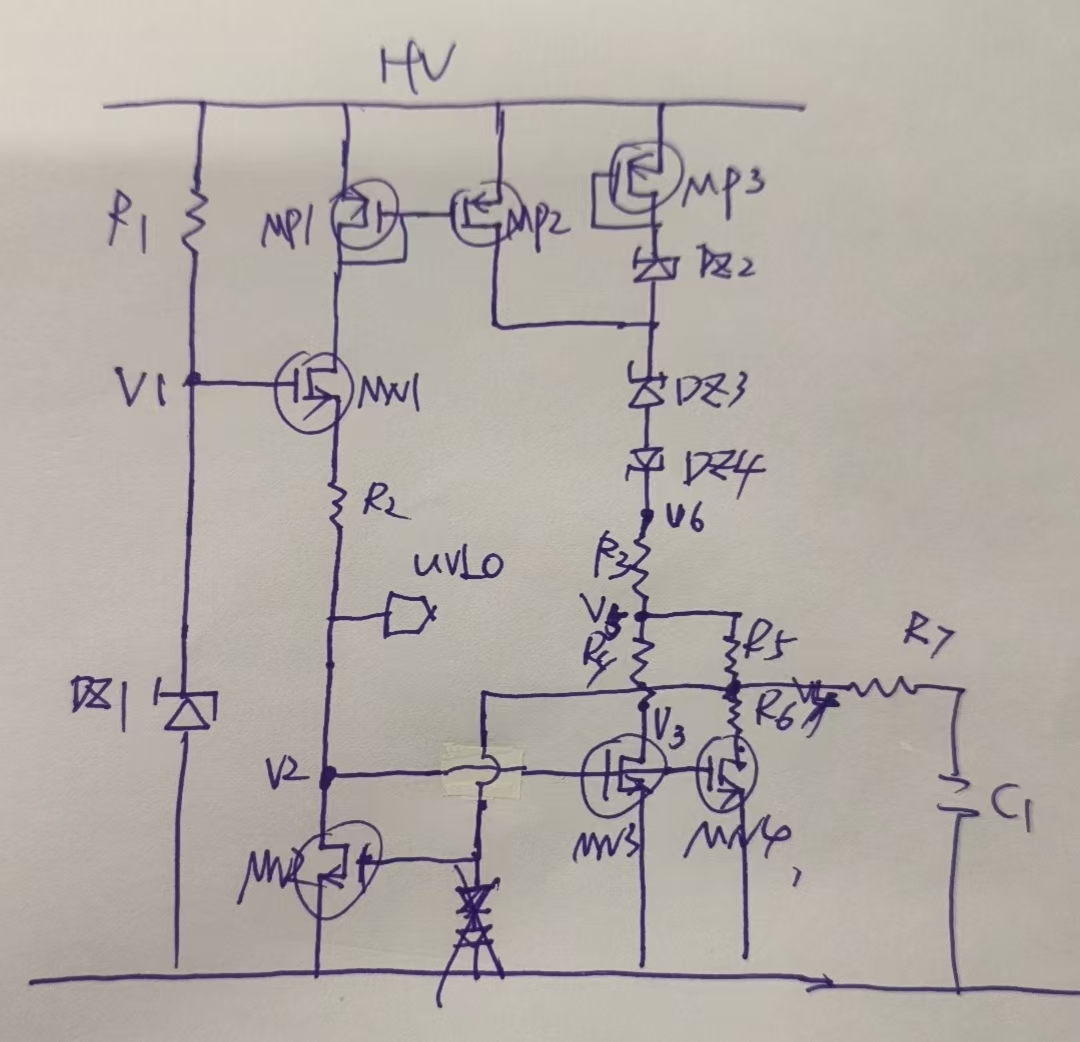 HV
R1
MP1
MP2
MP3
DZ2
V1
MN1
DZ3
DZ4
R2
V6
UVLO
R3
V5
R4
R5
R7
DZ1
R6
V3
V2
MN3
MN4
C1